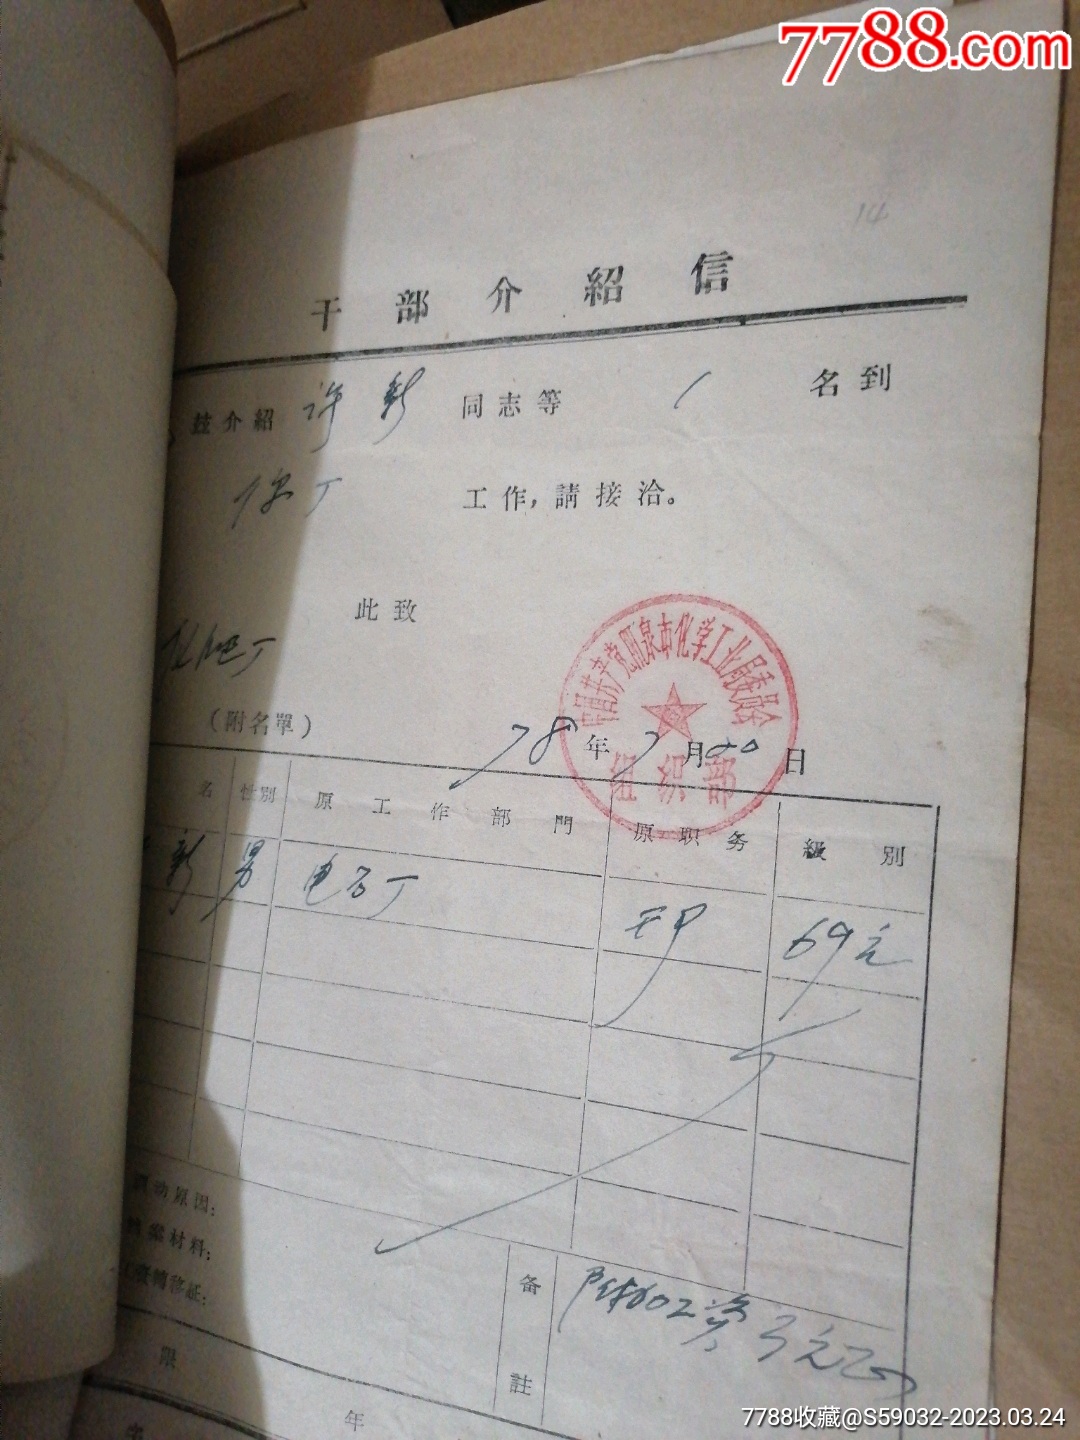 7788.com
14
干部介紹信
玆介紹 许新 同志等 1 名到
你厂 工作，請接洽。
此致
化肥厂
(附名單)
中国共产党阳泉市化学工业局委员会
组织部
78年7月20日
名 性別 原工作部門 原职务 級別
新 男 电石厂 干部 69元
动原因：
档案材料：
資轉移証：
备註
附加工资
限
年
7788收藏@S59032-2023.03.24